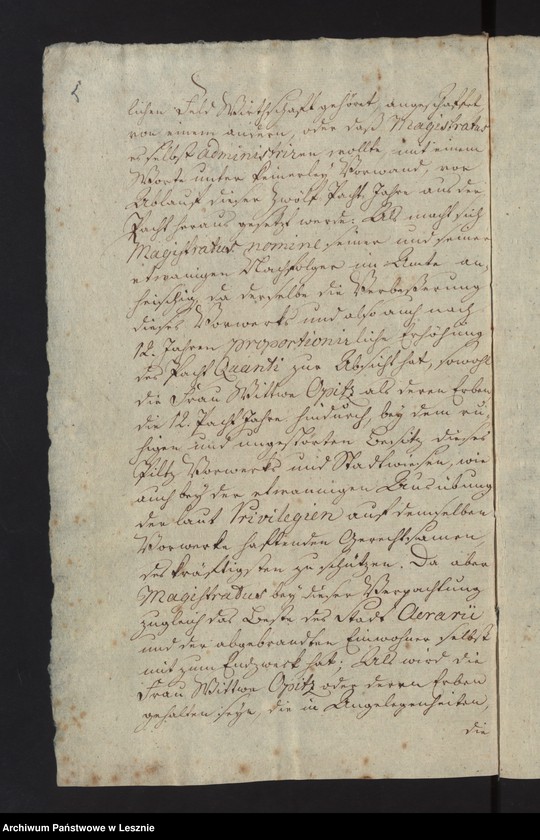 5
lichen Feld Wirthschaft gehöret, angeschaffet
von einem andern, oder daß Magistratus
es selbst administriren wollte mit einem
Worte unter keinerley Vorwand, vor
Ablauf dieser Zwölf Pacht Jahre aus der
Pacht heraus gesetzt werde: Als macht sich
Magistratus nomine seiner und seiner
etwanigen Nachfolger im Amte an,
heischig, da derselbe die Verbeßerung
dieses Vorwerks und also auch nach
12. Jahren proportionirliche Erhöhung
des Pacht Quanti zur Absicht hat, sowohl
die Frau Wittwe Opitz als deren Erben
die 12. Pacht Jahre hindurch, bey dem ru,
higen und ungestörten Besitz dieses
Filtz Vorwerks und Stadtwiesen, wie
auch bey der etwannigen Ausübung
der laut Privilegien auf demselben
Vorwerke haftenden Gerechtsamen,
des kräftigsten zu schützen. Da aber
Magistratus bey dieser Verpachtung
zugleich das Beste des Stadt Aerarii
und der abgebrandten Einwohner selbst
mit zum Endzweck hat; Als wird die
Frau Wittwe Opitz oder deren Erben
gehalten seyn, die in Angelegenheiten,
die
Archiwum Państwowe w Lesznie